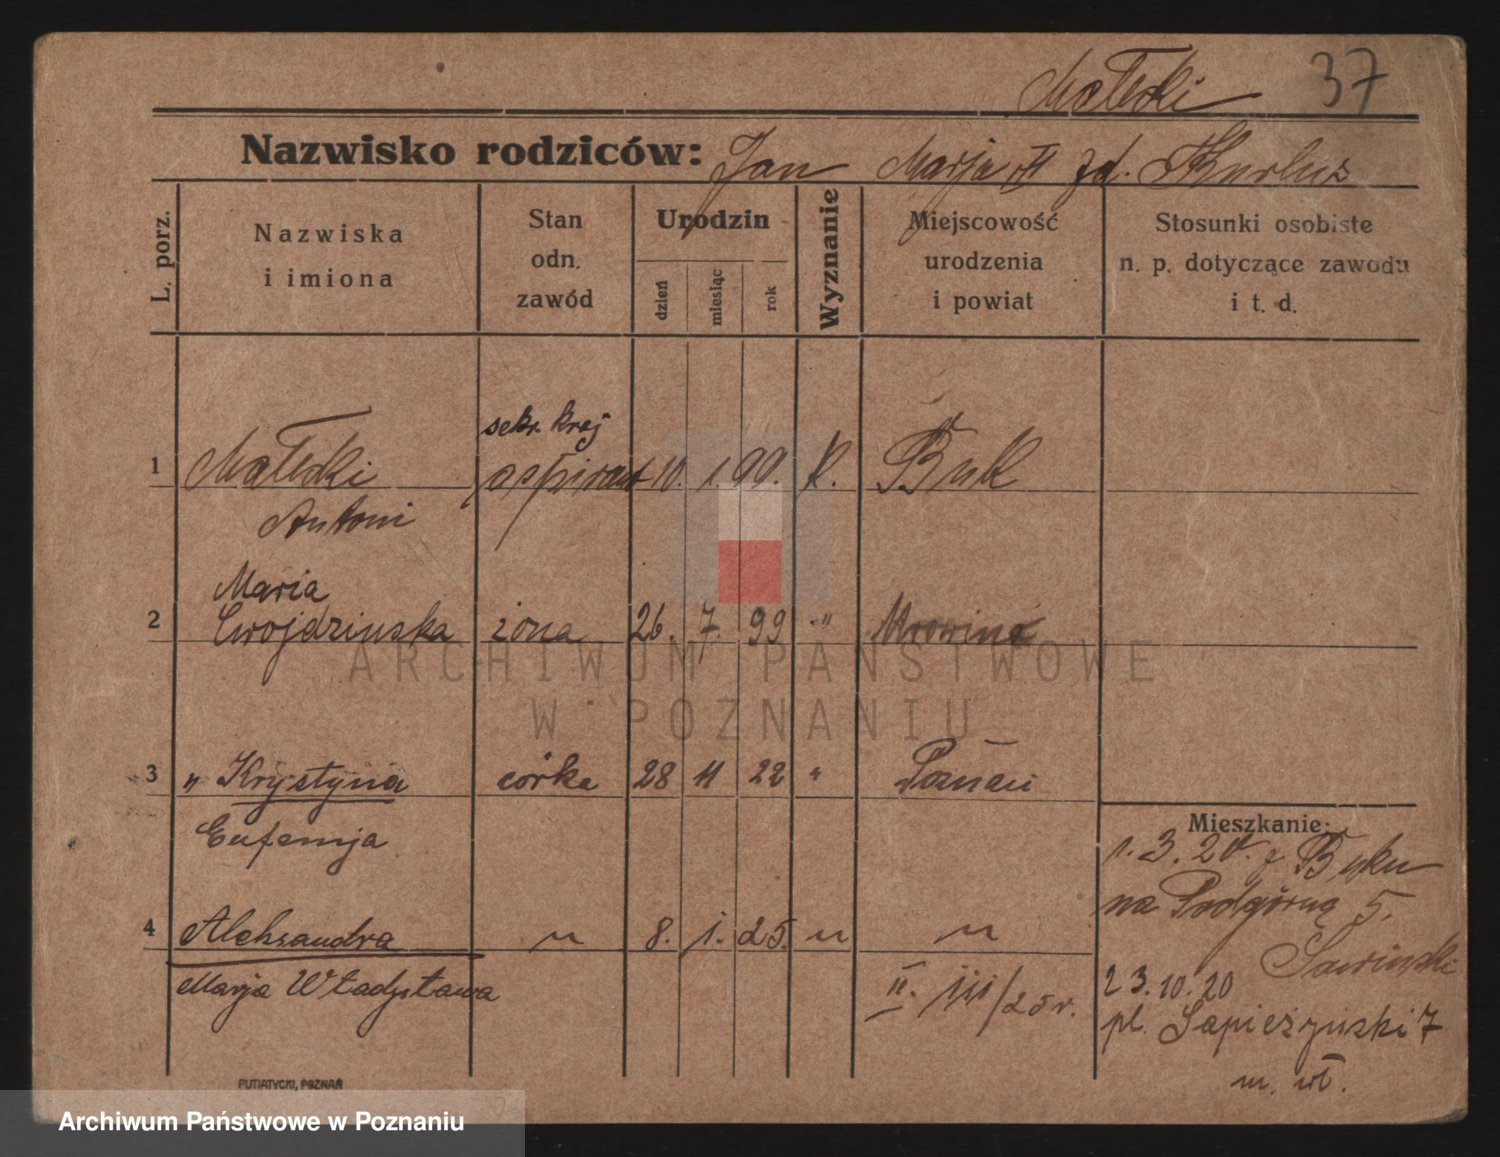 Małecki 37
Nazwisko rodziców: Jan Marja zd.
L. porz.
Nazwiska
i imiona
Stan
odn.
zawód
Urodzin
dzień
miesiąc
rok
Wyznanie
Miejscowość
urodzenia
i powiat
Stosunki osobiste
n. p. dotyczące zawodu
i t. d.
sekr. kraj
1 Małecki aspirant 10. 1. 99. k. Buk
Antoni
Maria
2 Cwojdzinska żona 26. 7. 99 " Mrowino
ARCHIWUM PAŃSTWOWE
W POZNANIU
3 " Krystyna córka 28 11 22 " Poznań
Eufemja
4 Aleksandra " 8. 1. 25. " "
Marja Władysława
II. /25 r.
Mieszkanie:
1. 3. 20. z Buku
na Podgórną 5.
Sowinski
23.10.20
pl. Sapieżynski 7
m. wł.
PUTIATYCKI, POZNAŃ
Archiwum Państwowe w Poznaniu